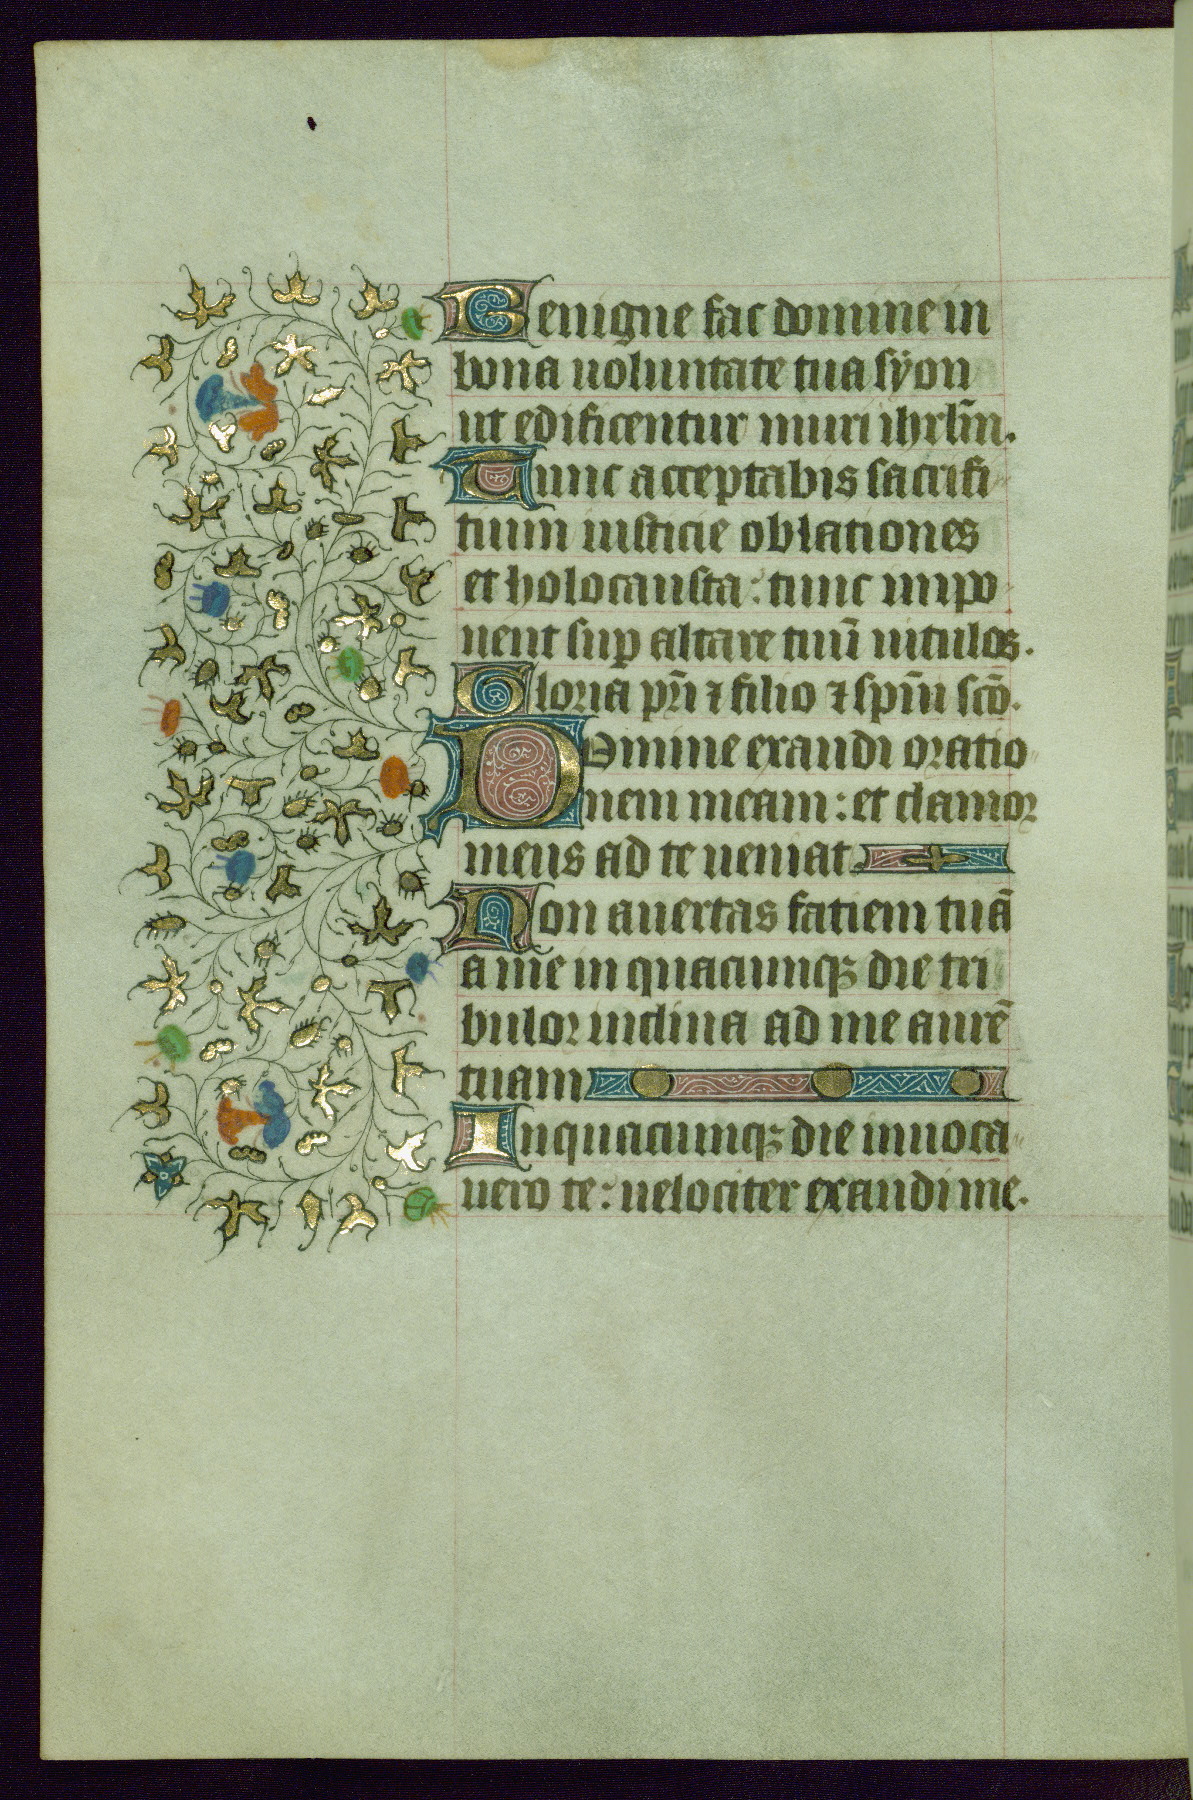 Benigne fac domine in
bona uoluntate tua sÿon
ut edificentur muri ihrlm̄.
Tunc acceptabis sacrifi
tium iusticie oblationes
et holocausta: tunc inpo
nent sup altare tuū uitulos.
Gloria pri̅ ⁊ filio ⁊ spi̅u sco̅.
Domine exaudi oratio
nem meam: et clamor
meus ad te ueniat
Non auertas fatiem tuā
a me in quacunqꝫ die tri
bulor inclina ad me aurē
tuam
Inquacunqꝫ die inuoca
uero te: uelociter exaudi me.